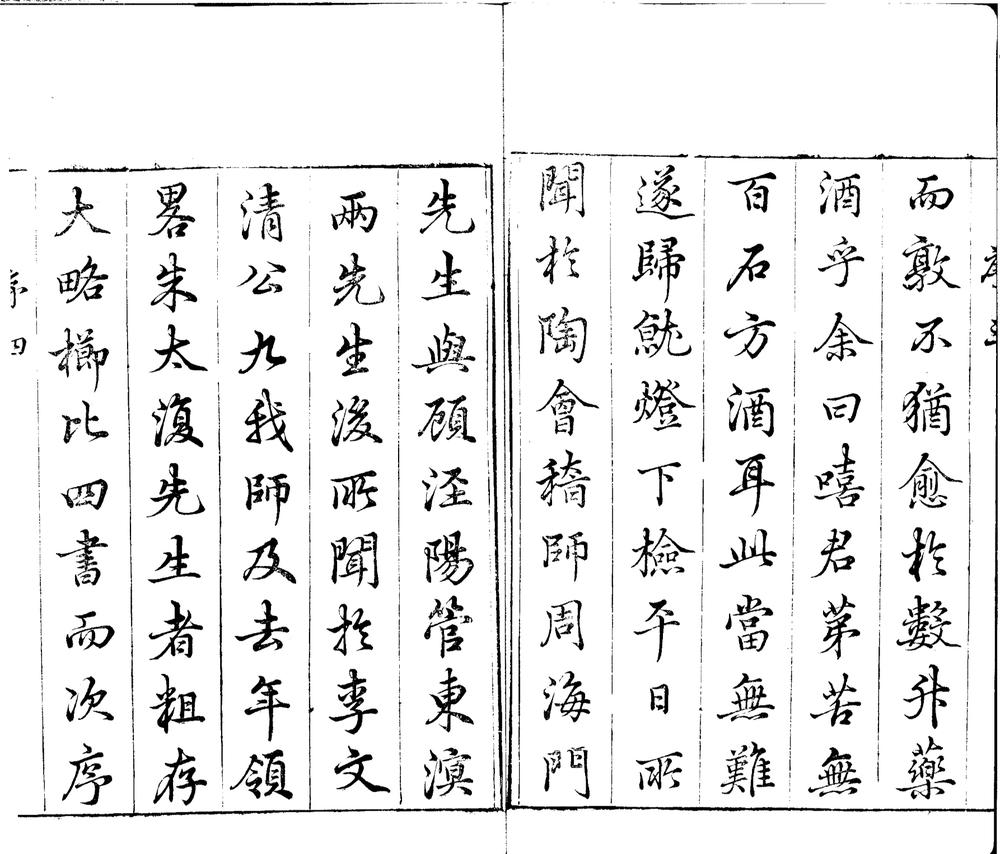 而敦不猶愈於數升藥
酒乎余曰嘻君苐苦無
百石方酒耳此當無難
遂歸就燈下檢平日所
聞於陶會稽師周海門
先生與顧涇陽管東溟
兩先生後所聞於李文
清公九我師及去年領
畧朱太復先生者粗存
大略櫛比四書而次序
序四